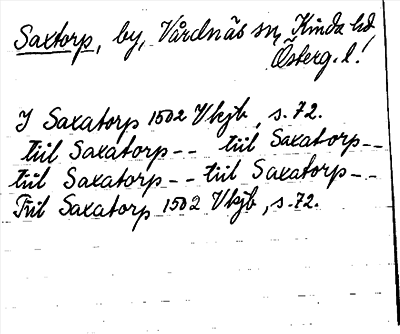 Saxtorp, by, Vårdnäs sn, Kinda hd,
Österg. l.
I Saxatorp 1502 Vkjb, s. 72.
tiil Saxatorp -- tiil Saxatorp --
tiil Saxatorp -- tiil Saxatorp --
Tiil Saxatorp 1502 Vkjb, s. 72.